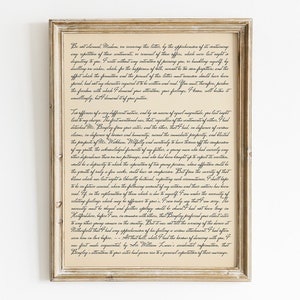 Be not alarmed, Madam, on receiving this letter, by the apprehension of its containing
any repetition of those sentiments, or renewal of those offers, which were last night so
disgusting to you. I write without any intention of paining you, or humbling myself, by
dwelling on wishes, which, for the happiness of both, cannot be too soon forgotten; and the
effort which the formation and the perusal of this letter must occasion should have been
spared, had not my character required it to be written and read. You must, therefore, pardon
the freedom with which I demand your attention; your feelings, I know, will bestow it
unwillingly, but I demand it of your justice.
Two offences of a very different nature, and by no means of equal magnitude, you last night
laid to my charge. The first mentioned was, that, regardless of the sentiments of either, I had
detached Mr. Bingley from your sister, and the other, that I had, in defiance of various
claims, in defiance of honour and humanity, ruined the immediate prosperity, and blasted
the prospects of Mr. Wickham. Wilfully and wantonly to have thrown off the companion
of my youth, the acknowledged favourite of my father, a young man who had scarcely any
other dependence than on our patronage, and who had been brought up to expect its exertion,
would be a depravity, to which the separation of two young persons, whose affection could be
the growth of only a few weeks, could bear no comparison. But from the severity of that
blame which was last night so liberally bestowed, respecting each circumstance, I shall hope
to be in future secured, when the following account of my actions and their motives has been
read. If, in the explanation of them which is due to myself, I am under the necessity of
relating feelings which may be offensive to yours, I can only say that I am sorry. The
necessity must be obeyed and further apology would be absurd. I had not been long in
Hertfordshire, before I saw, in common with others, that Bingley preferred your elder sister
to any other young woman in the country. But it was not till the evening of the dance at
Netherfield that I had any apprehension of his feeling a serious attachment. I had often
seen him in love before. At that ball, while I had the honour of dancing with you, I
was first made acquainted, by Sir William Lucas's accidental information, that
Bingley's attentions to your sister had given rise to a general expectation of their marriage.